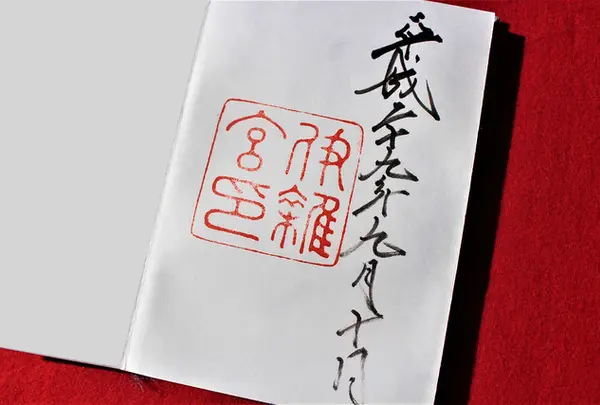 平成二十九年九月十八日
伊雜
宮印